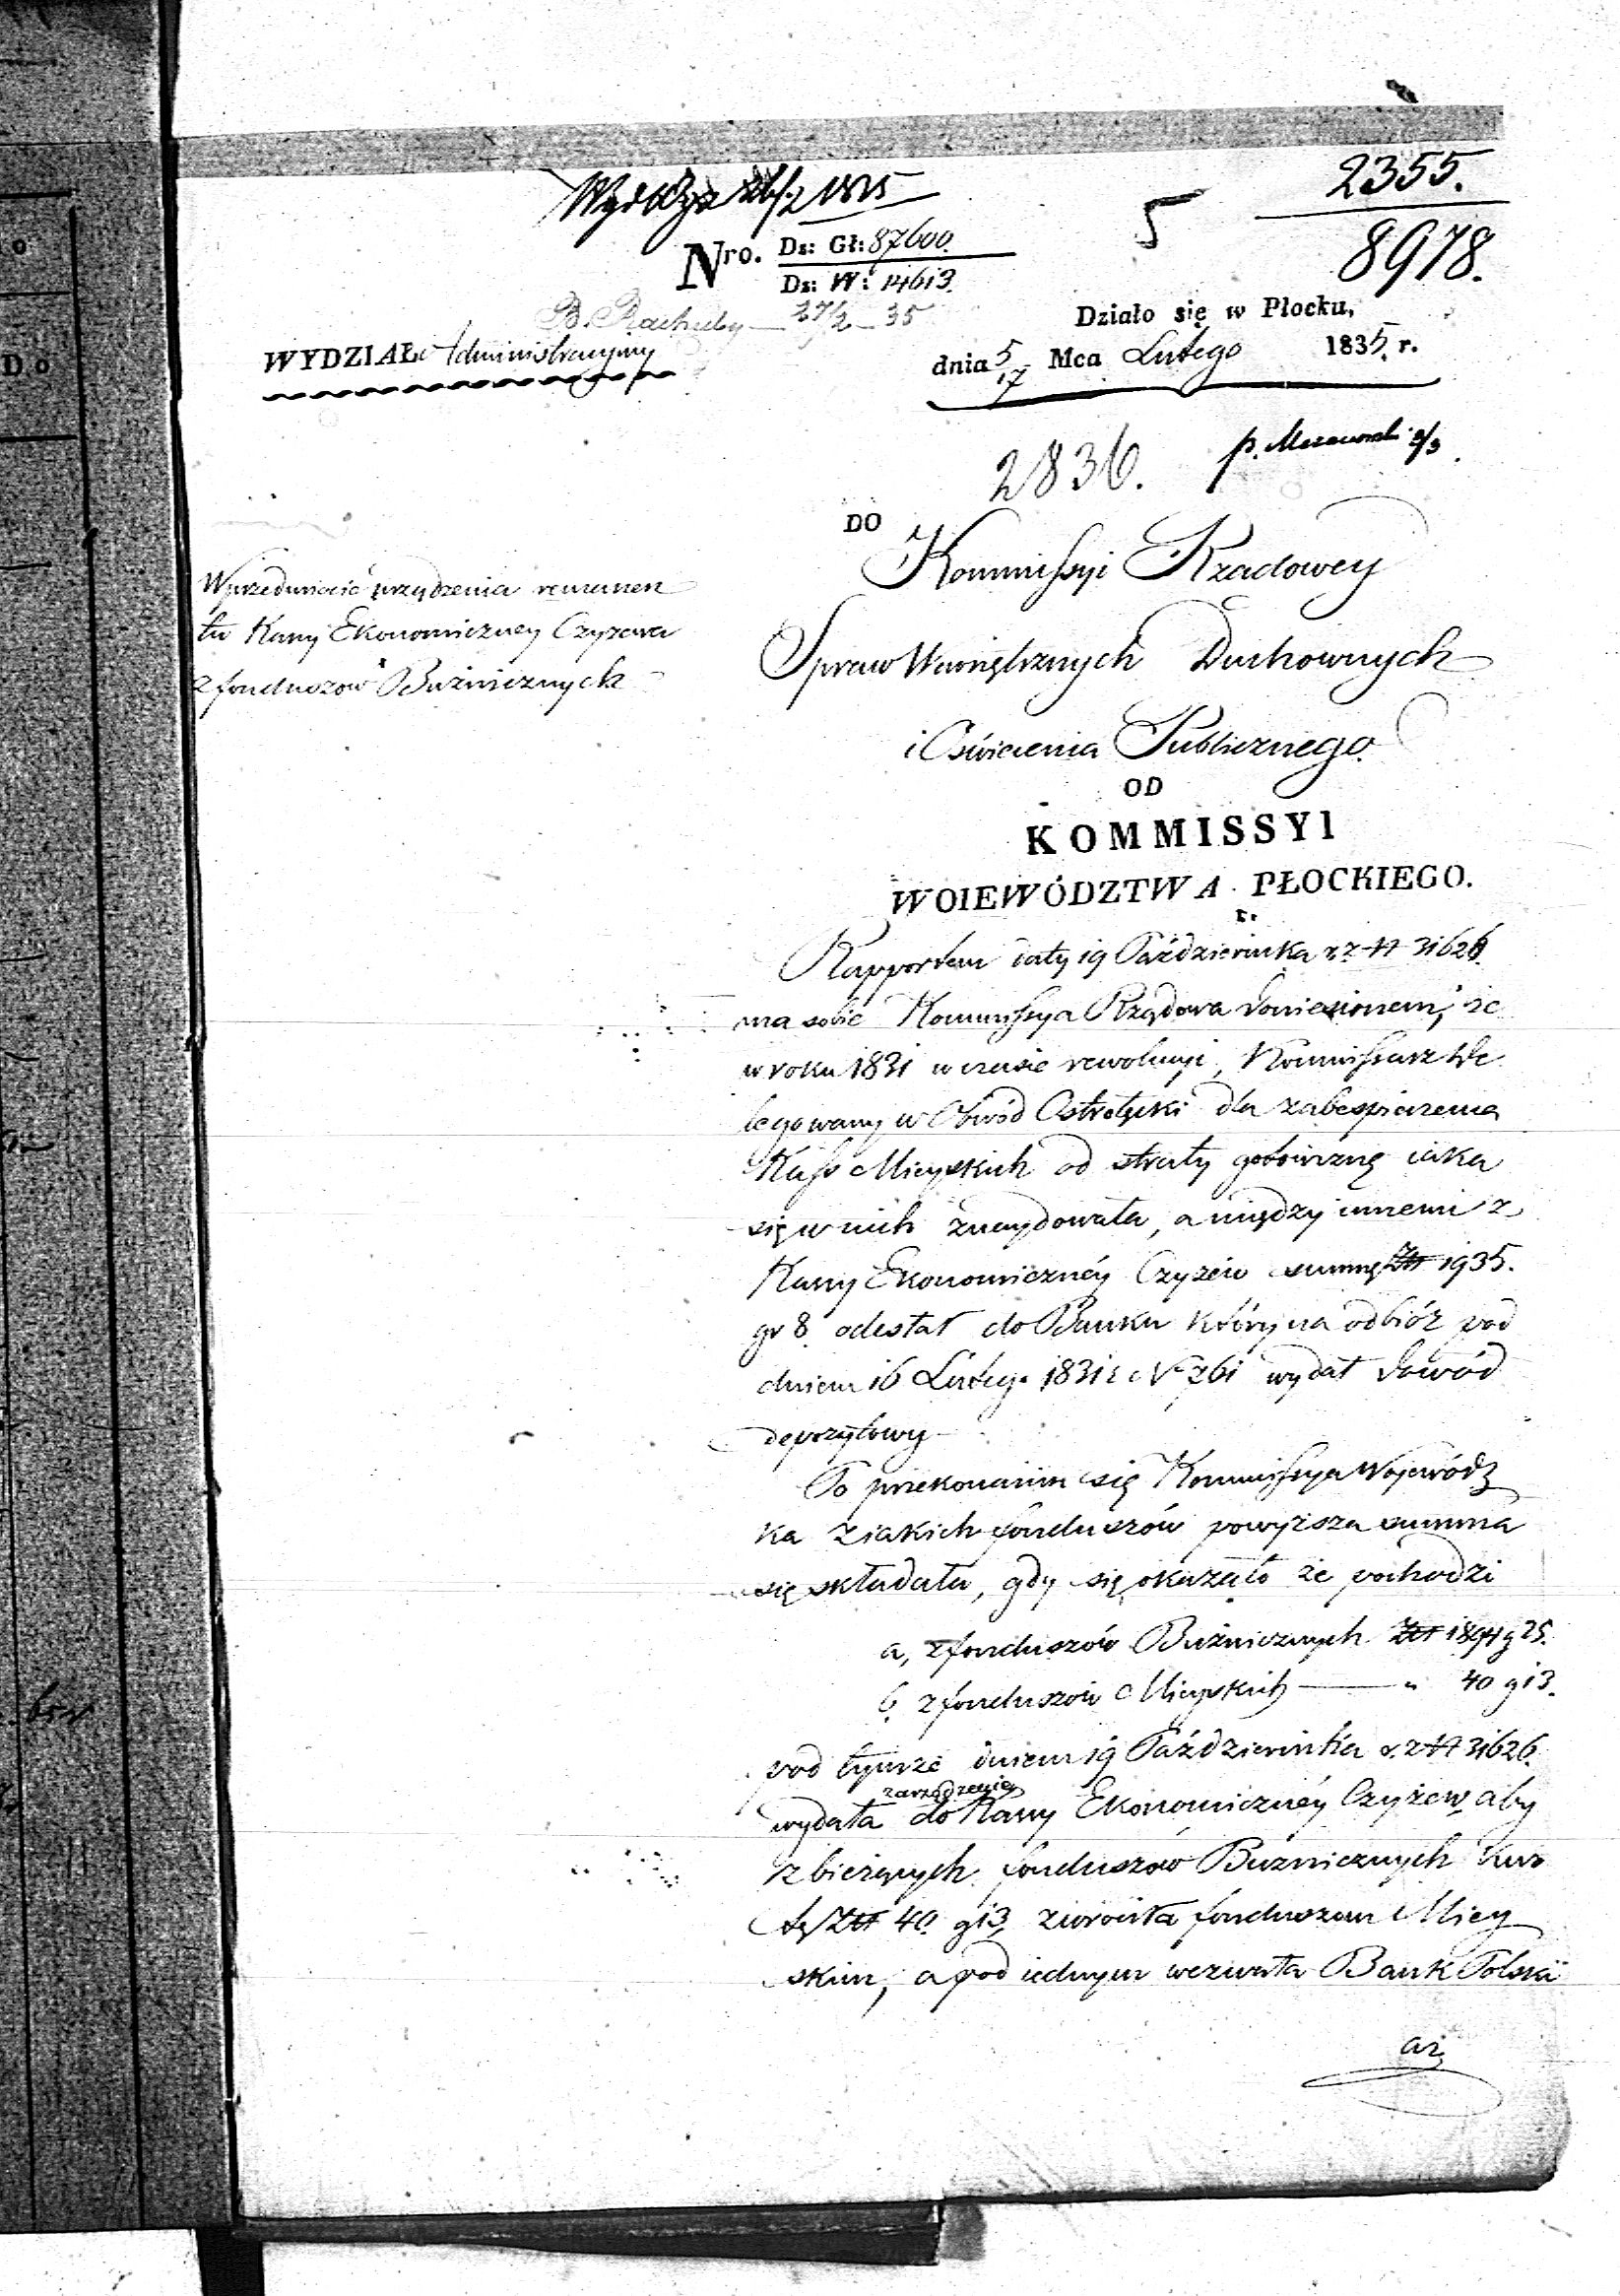 2355.
8978.
5
Nro. Ds: Gł: 87600.
Ds: W: 14613.
B. Rachuby — 27/2 — 35
Działo się w Płocku,
WYDZIAŁ Administracyiny
dnia 5/17 Mca Lutego 1835. r.
2836.
DO
Kommissyi Rządowey
Spraw Wewnętrznych Duchownych
i Oświecenia Publicznego.
W przedmiocie urządzenia remanen
tu Kassy Ekonomiczney Czyżewa
z funduszów Bużnicznych
OD
KOMMISSYI
WOIEWÓDZTWA PŁOCKIEGO.
Rapportem daty 19 Października r. z. N 31626.
ma sobie Kommissya Rządowa doniesionem, że
w roku 1831 w czasie rewolucyi, Kommissarz De
legowany w Obwód Ostrołęcki dla zabespieczenia
Kass Mieyskich od straty gotowiznę iaka
się w nich znaydowała, a między innemi z
Kassy Ekonomicznéy Czyżew summę Zł 1935.
gr 8. odesłał do Banku który na odbiór pod
dniem 16 Lutego 1831 r. N 261 wydał dowód
depozytowy
Po przekonaniu się Kommissya Wojewódz
ka z iakich funduszów powyższa summa
się składała, gdy się okazało że pochodzi
a, z funduszów Bużnicznych Zł 1894 g 25.
b, z funduszów Mieyskich — " 40 g 13.
pod tymże dniem 19 Października r. z. N 31626.
zarządzenie
wydała do Kassy Ekonomicznéy Czyżew, aby
z bieżących funduszów Bużniczych kwo
tę Zł 40. g 13, zwróciła funduszom Miey
skim, a pod iednym wezwała Bank Polski
aż